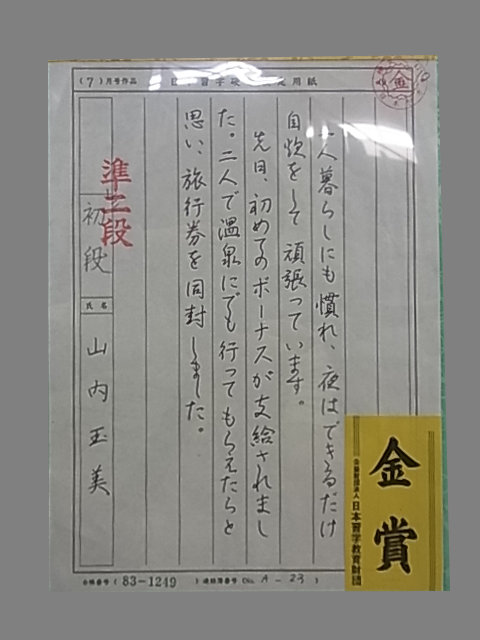 (7)月号作品
日本習字
用紙
金
一人暮らしにも慣れ、夜はできるだけ
自炊をして頑張っています。
先日、初めてのボーナスが支給されまし
た。二人で温泉にでも行ってもらえたらと
思い、旅行券を同封しました。
準二段
初段
氏名
山内玉美
会員番号(83-1249
)連絡簿番号(No. A-23)
金賞
公益財団法人 日本習字教育財団